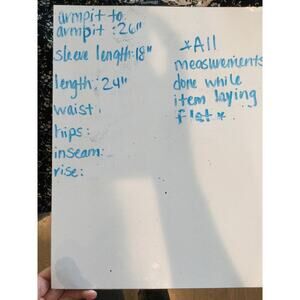 armpit to
armpit : 26"
sleeve length: 18"
length: 24"
waist:
hips:
inseam:
rise:
*All
measurements
done while
item laying
flat *